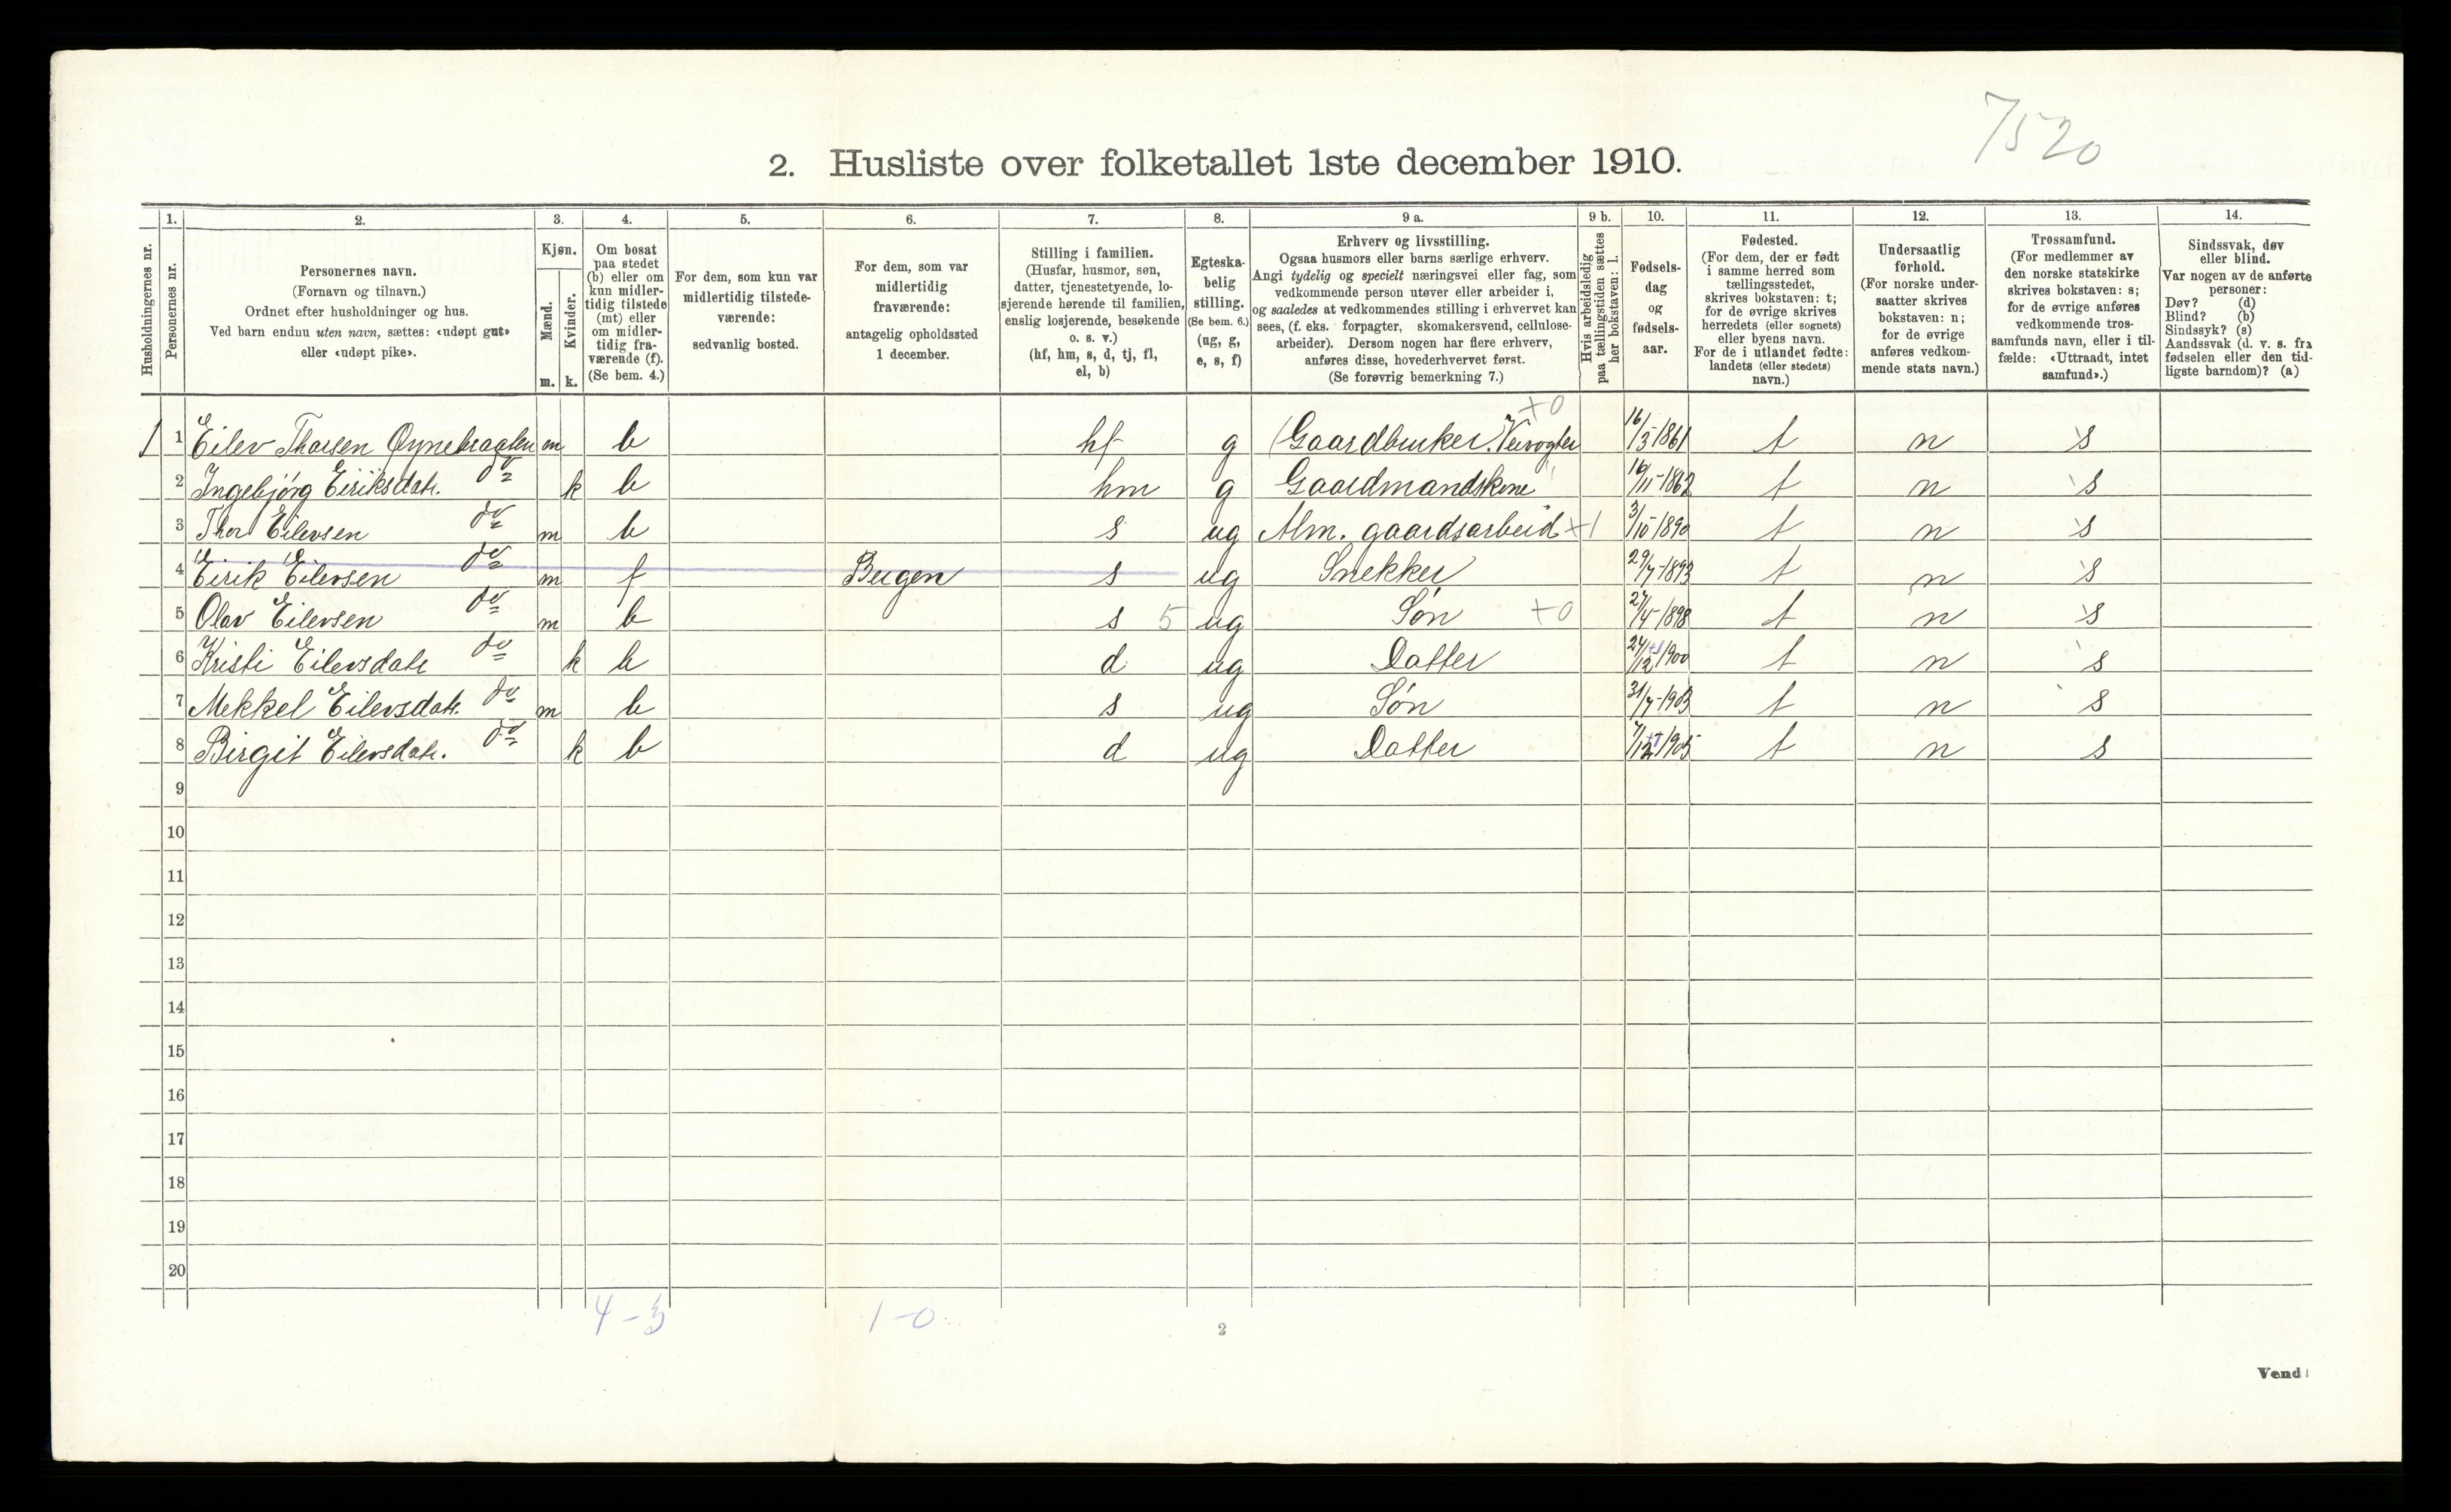 7520
2. Husliste over folketallet 1ste december 1910.
1. 2. 3. 4. 5. 6. 7. 8. 9 a. 9 b. 10. 11. 12. 13. 14.
Husholdningernes nr.
Personernes nr.
Personernes navn.
(Fornavn og tilnavn.)
Ordnet efter husholdninger og hus.
Ved barn endnu uten navn, sættes: «udøpt gut»
eller «udøpt pike».
Kjøn.
Mænd.
Kvinder.
m. k.
Om bosat
paa stedet
(b) eller om
kun midler-
tidig tilstede
(mt) eller
om midler-
tidig fra-
værende (f).
(Se bem. 4.)
For dem, som kun var
midlertidig tilstede-
værende:
sedvanlig bosted.
For dem, som var
midlertidig
fraværende:
antagelig opholdssted
1 december.
Stilling i familien.
(Husfar, husmor, søn,
datter, tjenestetyende, lo-
sjerende hørende til familien,
enslig losjerende, besøkende
o. s. v.)
(hf, hm, s, d, tj, fl,
el, b)
Egteska-
belig
stilling.
(Se bem. 6.)
(ug, g,
e, s, f)
Erhverv og livsstilling.
Ogsaa husmors eller barns særlige erhverv.
Angi tydelig og specielt næringsvei eller fag, som
vedkommende person utøver eller arbeider i,
og saaledes at vedkommendes stilling i erhvervet kan
sees, (f. eks. forpagter, skomakersvend, cellulose-
arbeider). Dersom nogen har flere erhverv,
anføres disse, hovederhvervet først.
(Se forøvrig bemerkning 7.)
Hvis arbeidsledig
paa tællingstiden sættes
her bokstaven: l.
Fødsels-
dag
og
fødsels-
aar.
Fødested.
(For dem, der er født
i samme herred som
tællingsstedet,
skrives bokstaven: t;
for de øvrige skrives
herredets (eller sognets)
eller byens navn.
For de i utlandet fødte:
landets (eller stedets)
navn.)
Undersaatlig
forhold.
(For norske under-
saatter skrives
bokstaven: n;
for de øvrige
anføres vedkom-
mende stats navn.)
Trossamfund.
(For medlemmer av
den norske statskirke
skrives bokstaven: s;
for de øvrige anføres
vedkommende tros-
samfunds navn, eller i til-
fælde: «Uttraadt, intet
samfund».)
Sindssvak, døv
eller blind.
Var nogen av de anførte
personer:
Døv? (d)
Blind? (b)
Sindssyk? (s)
Aandssvak (d. v. s. fra
fødselen eller den tid-
ligste barndom)? (a)
1 1 Eilev Thorsen m b hf g (Gaardbruker. Veivogter +0 16/3-1861 t n s
2 Ingebjørg Eiriksdatr. do k b hm g Gaardmandskone 16/11-1862 t n s
3 Thor Eilevsen do m b s ug Alm. gaardsarbeid +1 3/10-1890 t n s
4 Eirik Eilevsen do m f Bergen s ug Snekker 29/7-1893 t n s
5 Olav Eilevsen do m b s 5 ug Søn +0 27/4-1898 t n s
6 Kristi Eilevsdatr do k b d ug Datter 24/12 1900 t n s
7 Mekkel Eilevsdatr. do m b s ug Søn 31/7-1903 t n s
8 Birgit Eilevsdatr. do k b d ug Datter 7/12 1905 t n s
9
10
11
12
13
14
15
16
17
18
19
20
4-3 1-0
2
Vend!